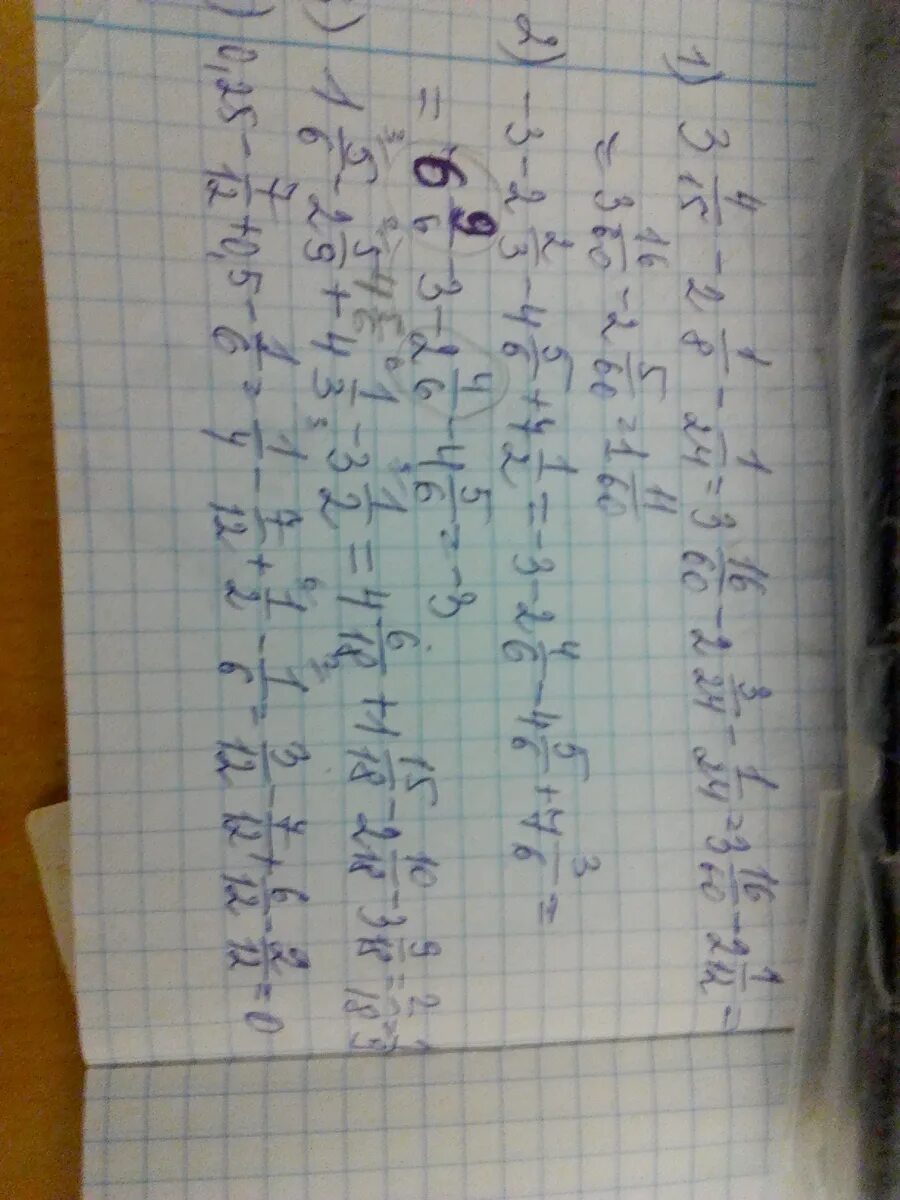 1) 3 4/15 - 2 1/8 - 1/24 = 3 16/60 - 2 3/24 - 1/24 = 3 16/60 - 2 1/12 =
= 3 16/60 - 2 5/60 = 1 11/60
2) - 3 - 2 2/3 - 4 5/6 + 7 1/2 = - 3 - 2 4/6 - 4 5/6 + 7 3/6 =
= 6 9/6 - 3 - 2 4/6 - 4 5/6 = - 3
) 1 5/6 - 2 5/9 + 4 1/3 - 3 1/2 = 4 6/18 + 1 15/18 - 2 10/18 - 3 9/18 = 2/18 = 1/9
) 0,25 - 7/12 + 0,5 - 1/6 = 1/4 - 7/12 + 1/2 - 1/6 = 3/12 - 7/12 + 6/12 - 2/12 = 0